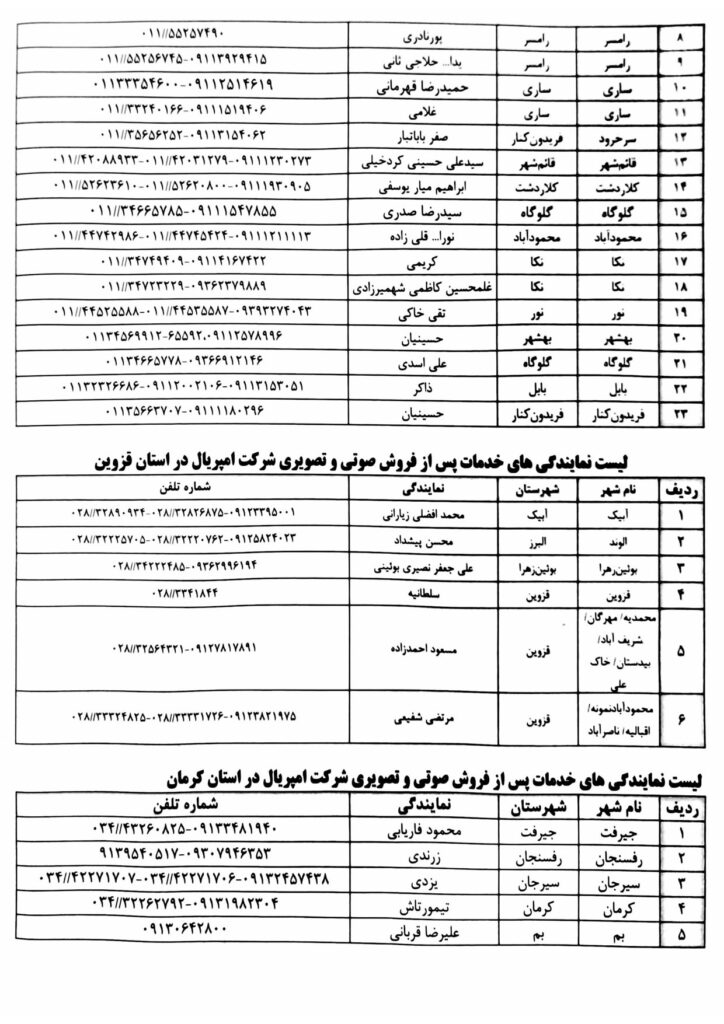 ۸ رامسر رامسر پورنادری ۰۱۱//۵۵۲۵۷۴۹۰
۹ رامسر رامسر یدا... حلاجی ثانی ۰۱۱//۵۵۲۵۶۷۴۵-۰۹۱۱۳۹۲۹۴۱۵
۱۰ ساری ساری حمیدرضا قهرمانی ۰۱۱۳۳۳۵۴۶۰۰-۰۹۱۱۲۵۱۴۶۱۹
۱۱ ساری ساری غلامی ۰۱۱//۳۳۲۴۰۱۶۶-۰۹۱۱۱۵۱۹۴۰۶
۱۲ سرخرود فریدون‌کنار صفر باباتبار ۰۱۱//۳۵۶۵۶۲۵۲-۰۹۱۱۳۱۵۴۰۶۲
۱۳ قائم‌شهر قائم‌شهر سیدعلی حسینی کردخیلی ۰۱۱//۴۲۰۸۸۹۳۳-۰۱۱//۴۲۰۳۱۲۷۹-۰۹۱۱۱۲۳۰۲۷۳
۱۴ کلاردشت کلاردشت ابراهیم میار یوسفی ۰۱۱//۵۲۶۲۳۶۱۰-۰۱۱//۵۲۶۲۰۸۰۰-۰۹۱۱۱۹۳۰۹۰۵
۱۵ گلوگاه گلوگاه سیدرضا صدری ۰۱۱//۳۴۶۶۵۷۸۵-۰۹۱۱۱۵۴۷۸۵۵
۱۶ محمودآباد محمودآباد نورا... قلی زاده ۰۱۱//۴۴۷۴۲۹۸۶-۰۱۱//۴۴۷۴۵۴۲۴-۰۹۱۱۱۲۱۱۱۱۳
۱۷ نکا نکا کریمی ۰۱۱//۳۴۷۴۹۴۰۹-۰۹۱۱۴۱۶۷۴۲۲
۱۸ نکا نکا غلمحسین کاظمی شهمیرزادی ۰۱۱//۳۴۷۲۳۲۲۹-۰۹۳۶۲۳۷۹۸۸۹
۱۹ نور نور تقی خاکی ۰۱۱//۴۴۵۲۵۵۸۸-۰۱۱//۴۴۵۳۵۵۸۷-۰۹۳۹۳۲۷۴۰۴۳
۲۰ بهشهر بهشهر حسینیان ۰۱۱۳۴۵۶۹۹۱۲-۶۵۵۹۲،۰۹۱۱۲۵۷۸۹۹۶
۲۱ گلوگاه گلوگاه علی اسدی ۰۱۱۳۴۶۶۵۷۷۸-۰۹۳۶۶۹۱۲۱۴۶
۲۲ بابل بابل ذاکر ۰۱۱۳۲۳۲۶۶۸۶-۰۹۱۱۲۰۰۲۱۰۶-۰۹۱۱۳۱۵۳۰۵۱
۲۳ فریدون‌کنار فریدون‌کنار حسینیان ۰۱۱۳۵۶۶۳۷۰۷-۰۹۱۱۱۱۸۰۲۹۶
لیست نمایندگی های خدمات پس از فروش صوتی و تصویری شرکت امپریال در استان قزوین
ردیف نام شهر شهرستان نمایندگی شماره تلفن
۱ آبیک آبیک محمد افضلی زیارانی ۰۲۸//۳۲۸۹۰۹۳۴-۰۲۸//۳۲۸۲۶۸۷۵-۰۹۱۲۳۳۹۵۰۰۱
۲ الوند البرز محسن پیشداد ۰۲۸//۳۲۲۲۵۷۰۵-۰۲۸//۳۲۲۲۰۷۶۲-۰۹۱۲۵۸۲۴۰۲۳
۳ بوئین‌زهرا بوئین‌زهرا علی جعفر نصیری بوئینی ۰۲۸//۳۴۲۲۲۴۸۵-۰۹۳۶۲۹۹۶۱۹۴
۴ قزوین قزوین سلطانیه ۰۲۸//۳۳۴۱۸۴۴
۵ محمدیه/ مهرگان/ شریف آباد/ بیدستان/ خاک علی قزوین مسعود احمدزاده ۰۲۸//۳۲۵۶۴۳۲۱-۰۹۱۲۷۸۱۷۸۹۱
۶ محمودآبادنمونه/ اقبالیه/ ناصرآباد قزوین مرتضی شفیعی ۰۲۸//۳۳۳۲۴۸۲۵-۰۲۸//۳۳۳۳۱۷۲۶-۰۹۱۲۳۸۲۱۹۷۵
لیست نمایندگی های خدمات پس از فروش صوتی و تصویری شرکت امپریال در استان کرمان
ردیف نام شهر شهرستان نمایندگی شماره تلفن
۱ جیرفت جیرفت محمود فاریابی ۰۳۴//۴۳۲۶۰۸۲۵-۰۹۱۳۳۴۸۱۹۴۰
۲ رفسنجان رفسنجان زرندی ۹۱۳۹۵۴۰۵۱۷-۰۹۳۰۷۹۴۶۳۵۳
۳ سیرجان سیرجان یزدی ۰۳۴//۴۲۲۷۱۷۰۷-۰۳۴//۴۲۲۷۱۷۰۶-۰۹۱۳۲۴۵۷۴۳۸
۴ کرمان کرمان تیمورتاش ۰۳۴//۳۲۲۶۲۷۹۲-۰۹۱۳۱۹۸۲۳۰۴
۵ بم بم علیرضا قربانی ۰۹۱۳۰۶۴۲۸۰۰